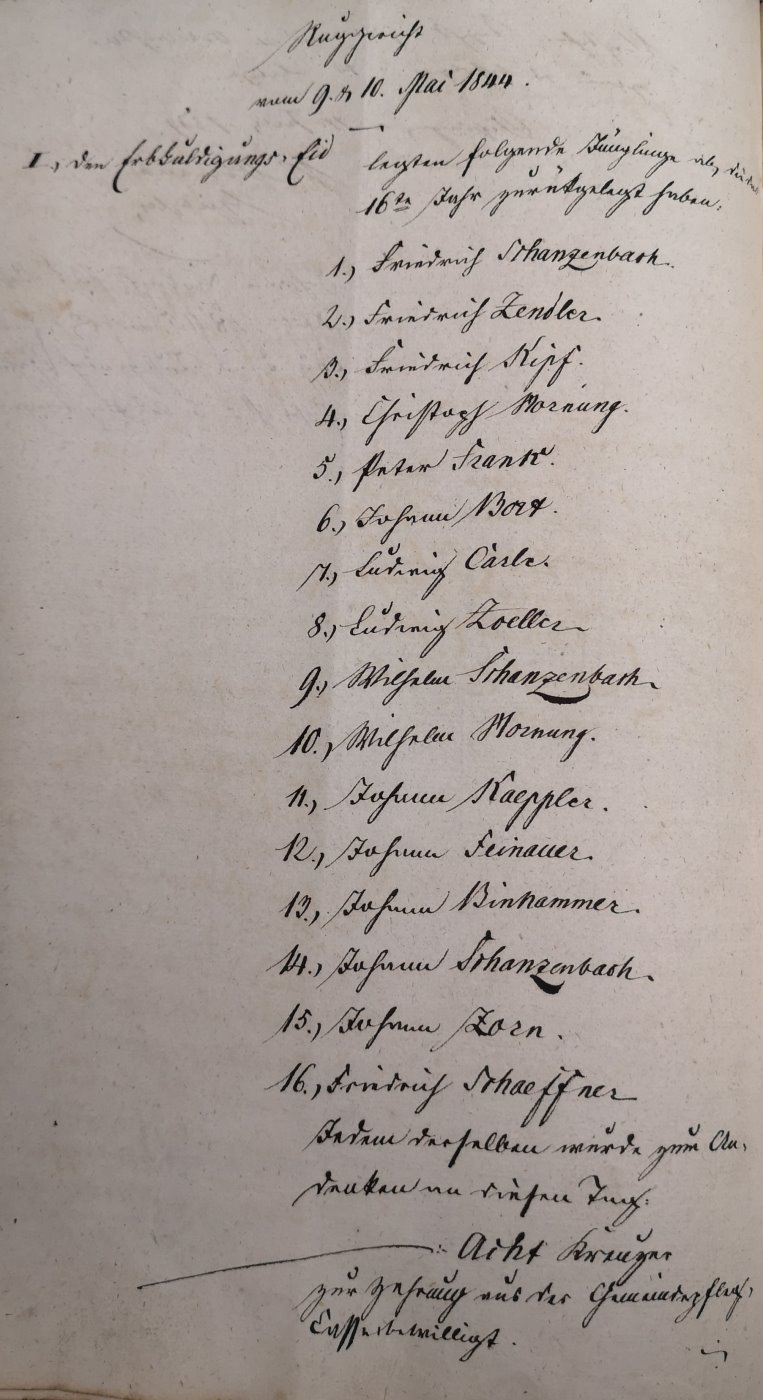 Ruggericht
vom 9. & 10. Mai 1844.
I, den Erbhuldigungs-Eid
legten folgende Jünglinge ab, die das
16te Jahr zurükgelegt haben:
1., Friedrich Schanzenbach.
2., Friedrich Zendler.
3., Friedrich Kipf.
4., Christoph Hornung.
5., Peter Frank.
6., Johann Bort.
7., Ludwig Carle.
8., Ludwig Zoeller
9., Wilhelm Schanzenbach.
10., Wilhelm Hornung.
11., Johann Kaeppler.
12., Johann Feinauer.
13., Johann Binhammer.
14., Johann Schanzenbach.
15., Johann Zorn.
16., Friedrich Schaeffner
Jedem derselben wurde zum An-
denken an diesen Tag:
: Acht Kreuzer
zur Zehrung aus der Gemeindepfleg-
Casse bewilligt.